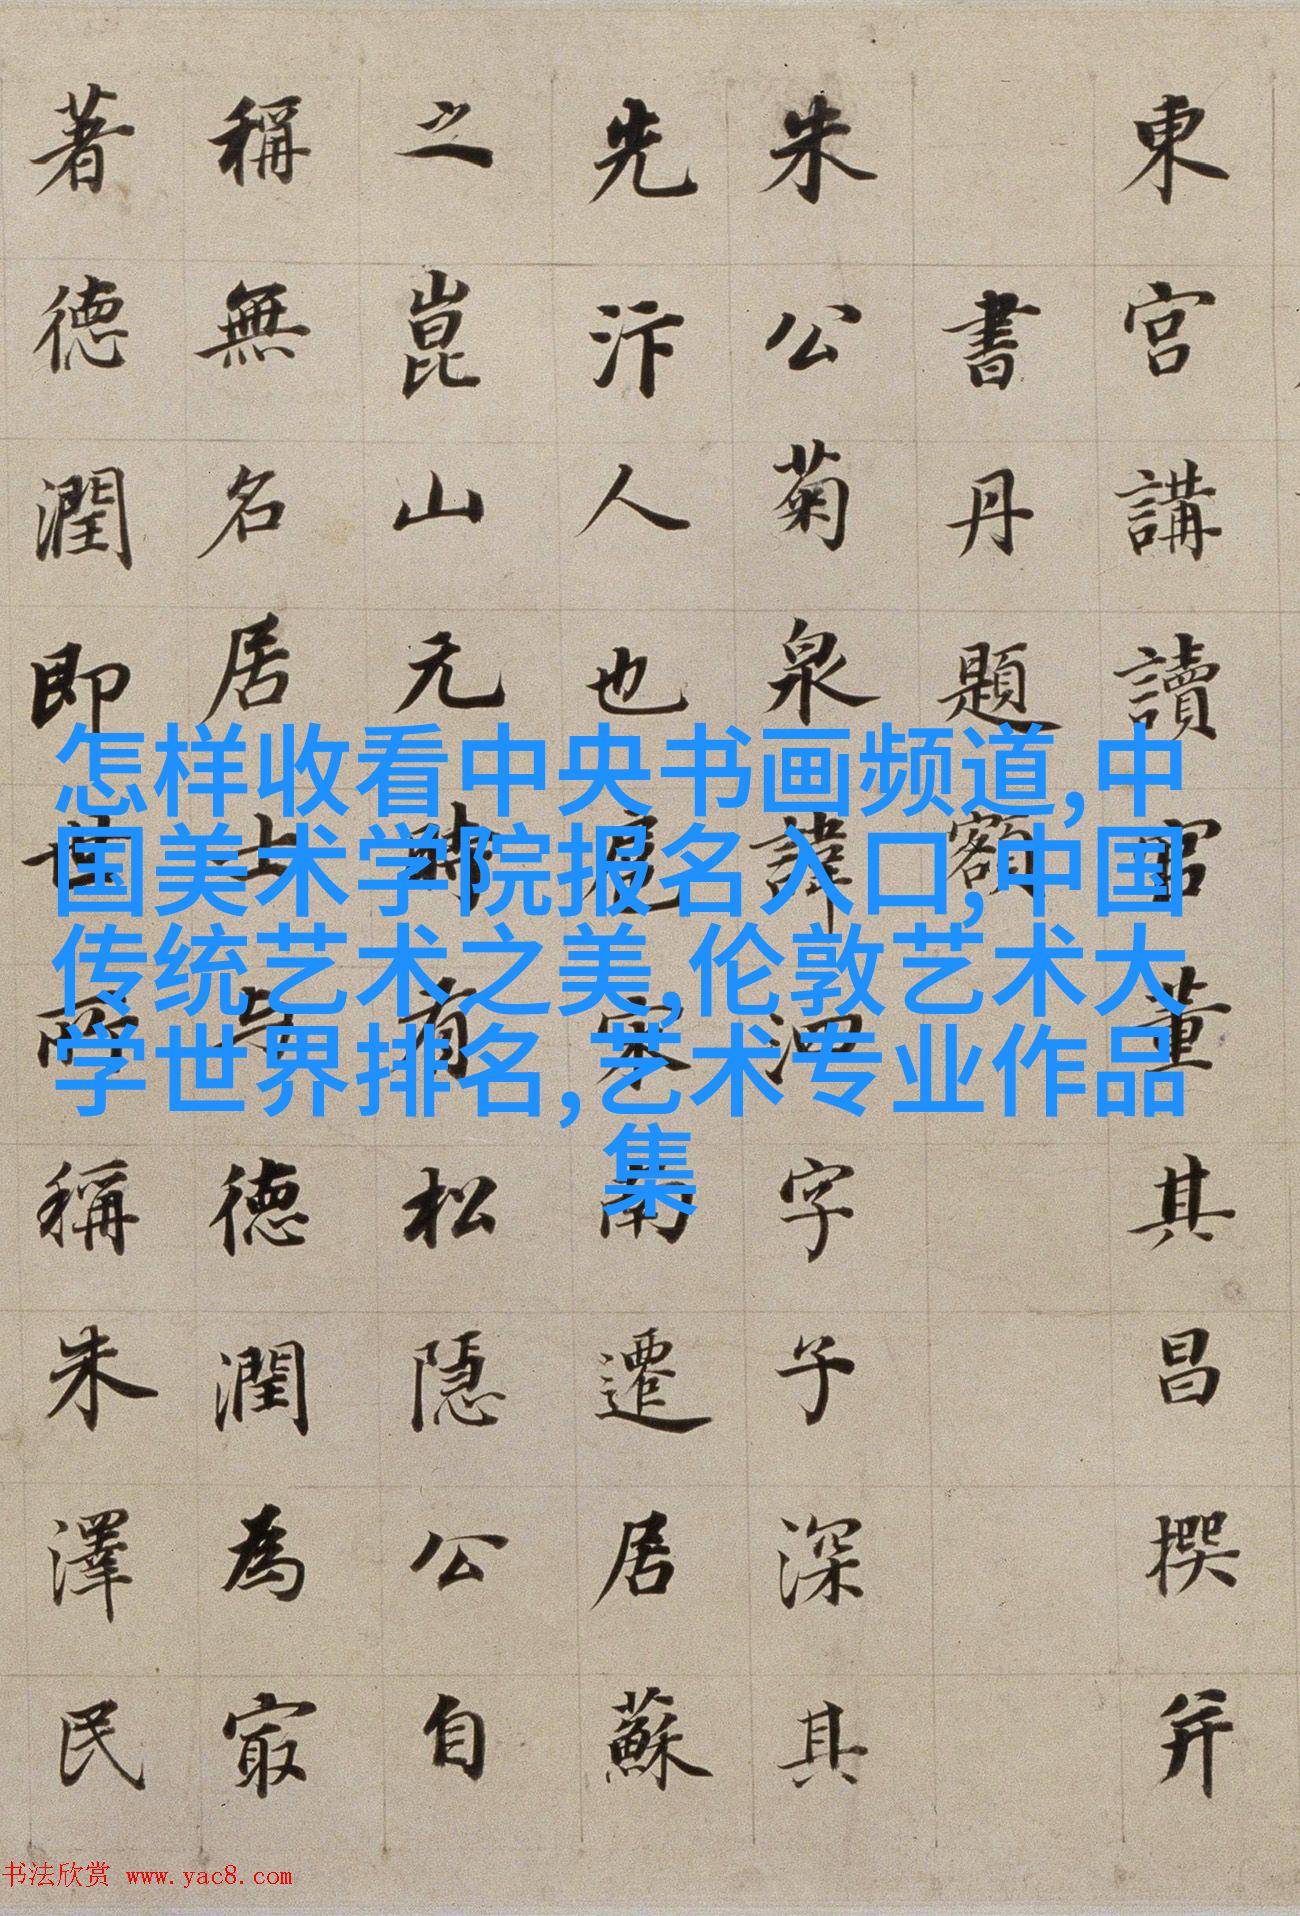 東宮講讀官董其昌撰并
書丹題額
朱公菊泉諱泗字子深其
先汴人也扈宋南遷居蘇
之崑山元時有松隱公自
稱無名居士与德潤為㝡
著德潤即世所稱朱澤民
怎样收看中央书画频道,中
国美术学院报名入口,中国
传统艺术之美,伦敦艺术大
学世界排名,艺术专业作品
集
书法欣赏 www.yac8.com